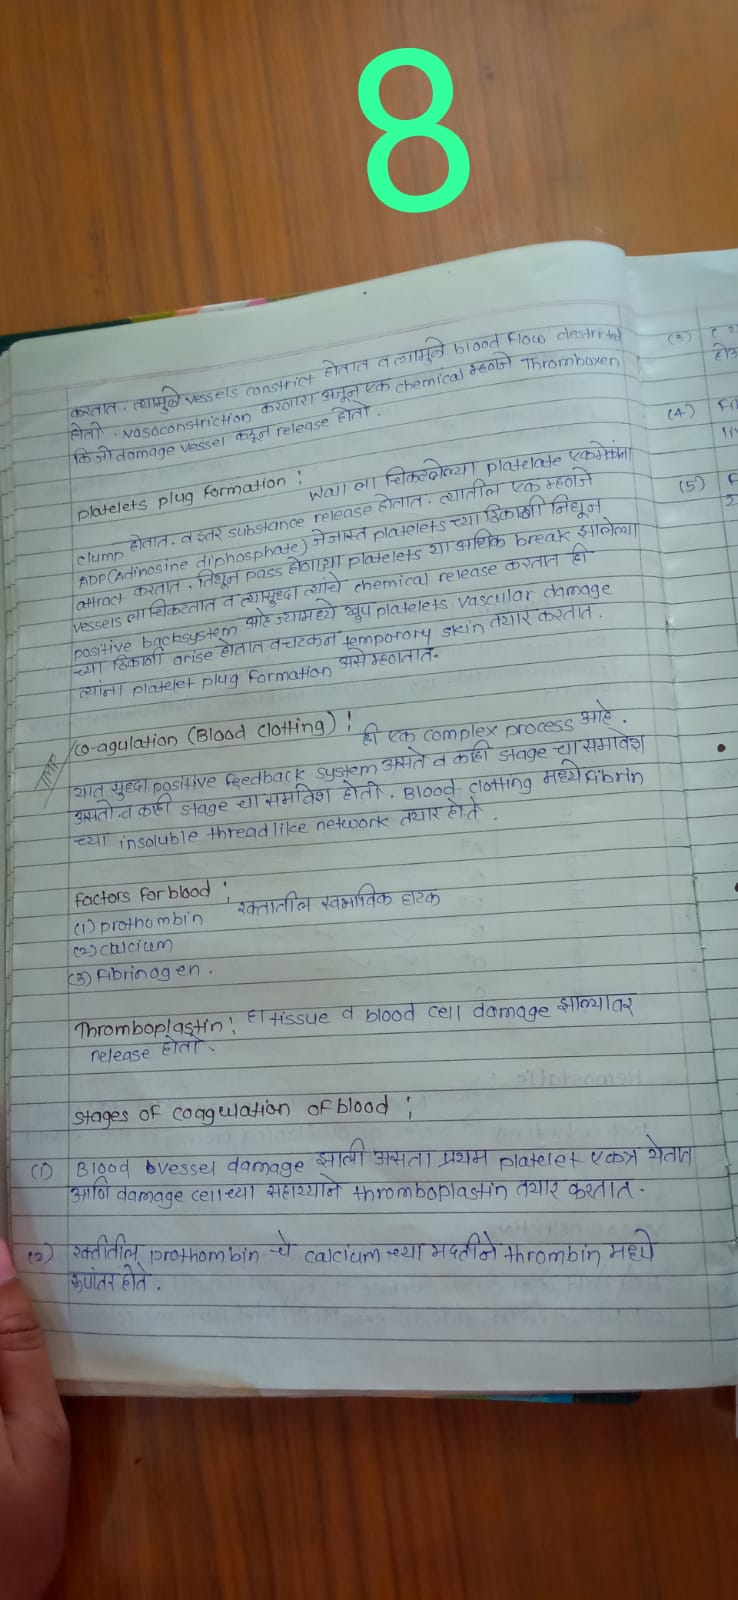 8
करतात. त्यामुळे vessels constrict होतात व त्यामुळे blood flow destrited
होतो. vasoconstriction करणारा अजून एक chemical म्हणजे Thromboxen
कि जो damage vessel कडून release होतो.
platelets plug formation :
wall ला चिकटलेल्या platelate एकमेकांना
clump होतात. व इतर substance release होतात. त्यातील एक म्हणजे
ADP(Adinosine diphosphate) जे जास्त platelets च्या ठिकाणी निघून
attract करतात. तिथून pass होणाऱ्या platelets या अधिक break झालेल्या
vessels ला चिकटतात व त्यासुध्दा त्यांचे chemical release करतात ही
positive backsystem आहे ज्यामध्ये खुप platelets vascular damage
च्या ठिकाणी arise होतात व चटकन temporory skin तयार करतात.
त्यांना platelet plug formation असे म्हणतात.
IMP
co-agulation (Blood clotting) :
ही एक complex process आहे.
यात सुध्दा positive feedback system असते व काही stage चा समावेश
असतो. व काही stage चा समावेश होतो. Blood clotting मध्ये Fibrin
च्या insoluble threadlike network तयार होते.
factors for blood : रक्तातील स्वभाविक घटक
(1) prothombin
(2) calcium
(3) Fibrinogen.
Thromboplastin : हा tissue व blood cell damage झाल्यावर
release होतो.
stages of coagulation of blood :
(1) Blood vessel damage झाली असता प्रथम platelet एकत्र येतात
आणि damage cell च्या सहाय्याने thromboplastin तयार करतात.
(2) रक्तातील prothombin चे calcium च्या मदतीने thrombin मध्ये
रूपांतर होते.
(3)
(4)
(5)